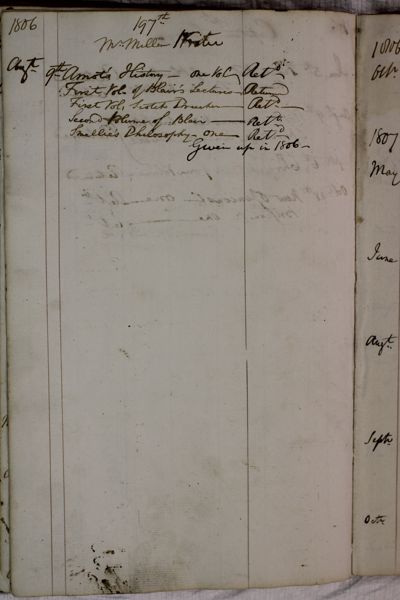 1806
197th
Mr Miller Writer
Augt. 9th. Arnot's History - one Vol. Retd.
First Vol. of Blair's Lectures Returnd
First Vol. Scotch Preacher Retd.
Second Volume of Blair Retd.
Smellie's Philosophy - one Retd.
Given up in 1806 -
1806
Octr.
1807
May
June
Augt.
Septr.
Octr.